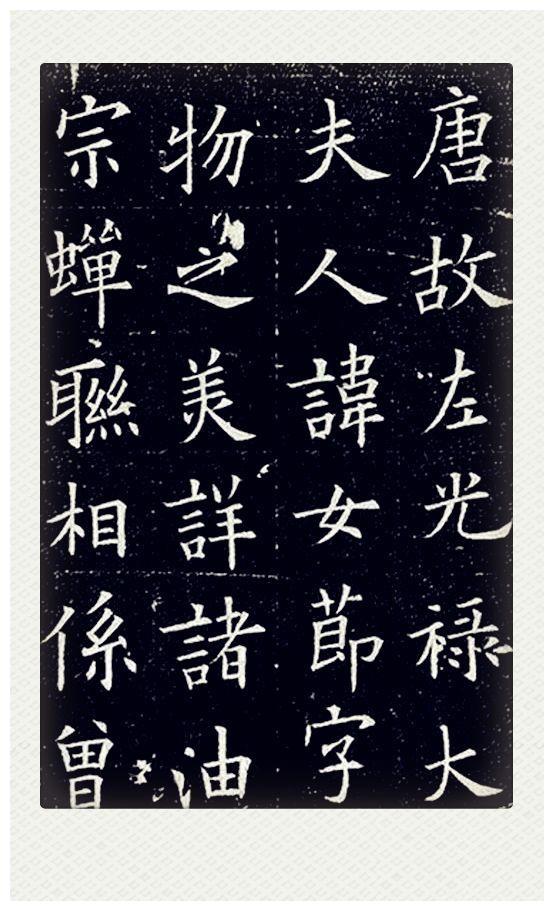 唐故左光禄大
夫人諱女莭字
物之美詳諸油
宗蟬聯相係曽